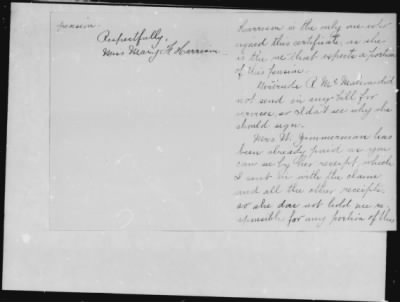 pension.
Respectfully,
Mrs Mary A Harrison.
Harrison is the only one who
signed this certificate, as she
is the one that expects a portion
of this pension.
Gertrude R. Mc did
not send in any bill for
services, so I don't see why she
should sign.
Mrs H. Zimmerman has
been already paid as you
can see by her receipt, which
I sent in with the claim
and all the other receipts,
so she does not hold me re-
sponsible for any portion of this